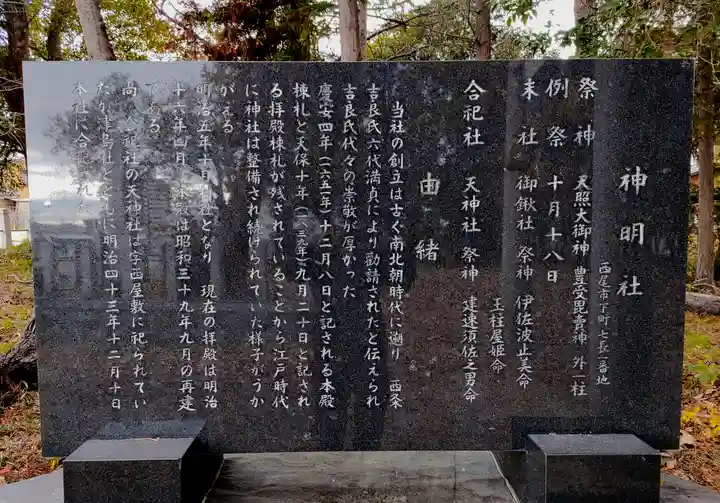 神明社
西尾市下町
番地
祭神 天照大御神 豊受毘賣神 外一柱
例祭 十月十八日
末社 御鍬社 祭神 伊佐波止美命
玉柱屋姫命
合祀社 天神社 祭神 建速須佐之男命
由緒
当社の創立は古く南北朝時代に遡り 西条
吉良氏六代満貞により勧請されたと伝えられ
吉良氏代々の崇敬が厚かった
慶安四年(一六五一年)十二月八日と記される本殿
棟札と天保十年(一八三九年)九月二十日と記され
る拝殿棟札が残されていることから江戸時代
に神社は整備され続けられていた様子がうか
がえる
明治五年十月 社となり 現在の拝殿は明治
十 年四月 本殿は昭和三十九年九月の再建
である
尚 合祀社の天神社は字西屋敷に祀られてい
たが 社とともに明治四十三年十二月十日
本社に合祀された